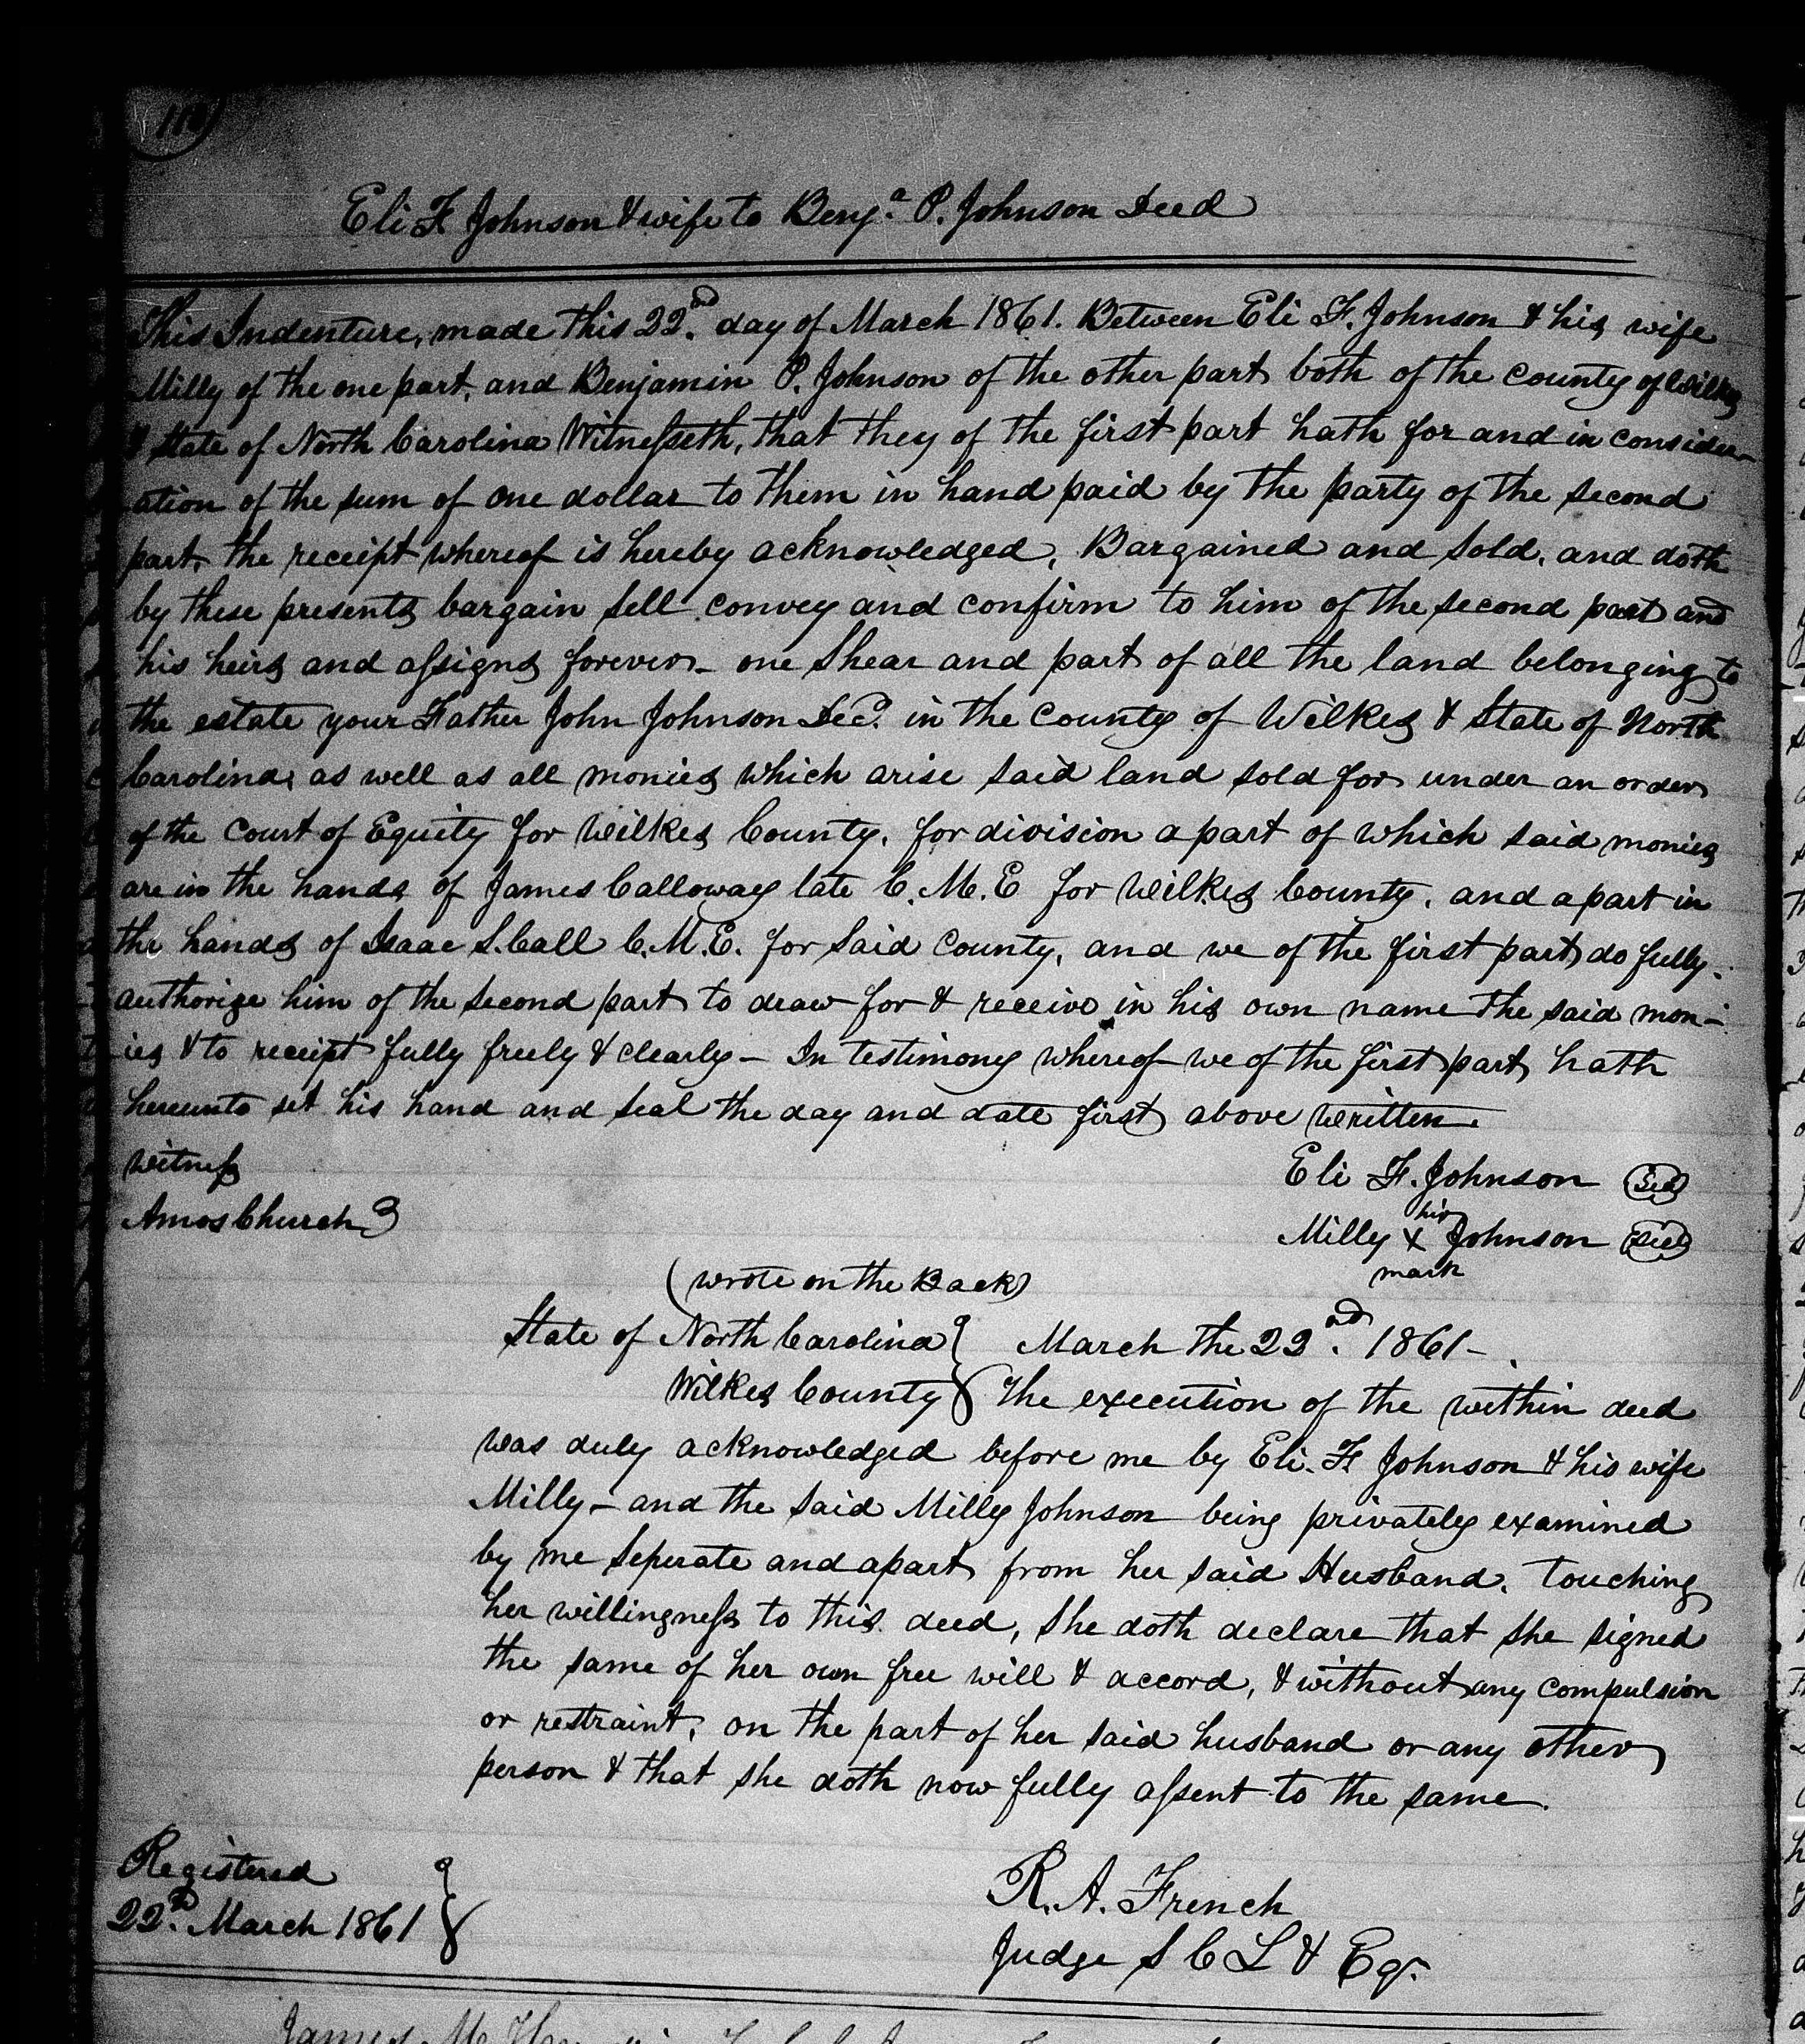 Eli F Johnson & wife to Benjᵃ. P. Johnson Deed
This Indenture, made this 22nd. day of March 1861. Between Eli F. Johnson & his wife
Milly of the one part, and Benjamin P. Johnson of the other part both of the county of Wilkes
& State of North Carolina Witnesseth, that they of the first part hath for and in consider-
ation of the sum of one dollar to them in hand paid by the party of the second
part, the receipt whereof is hereby acknowledged, Bargained and Sold, and doth
by these presents bargain sell convey and confirm to him of the second part and
his heirs and assigns forever – one Shear and part of all the land belonging to
the estate your Father John Johnson Decd. in the County of Wilkes & State of North
Carolina, as well as all monies which arise said land sold for under an order
of the Court of Equity for Wilkes County, for division a part of which said monies
are in the hands of James Calloway late C. M. E for Wilkes County, and a part in
the hands of Isaac S. Call C. M. E. for Said County, and we of the first part do fully
authorize him of the second part to draw for & receive in his own name the said mon-
ies & to receipt fully freely & clearly – In testimony whereof we of the first part hath
hereunto set his hand and seal the day and date first above written.
Witness
Eli F. Johnson Seal
Amos Church
his
Milly X Johnson Seal
mark
(wrote on the Back)
State of North Carolina } March the 22nd. 1861 –
Wilkes County } The execution of the within deed
was duly acknowledged before me by Eli. F Johnson & his wife
Milly – and the said Milly Johnson being privately examined
by me Seperate and apart from her said Husband, touching
her willingness to this deed, She doth declare that she signed
the same of her own free will & accord, & without any compulsion
or restraint, on the part of her said husband or any other
person & that she doth now fully assent to the same.
Registered
22d. March 1861 }
R. A. French
Judge S C L & Eq.
James M